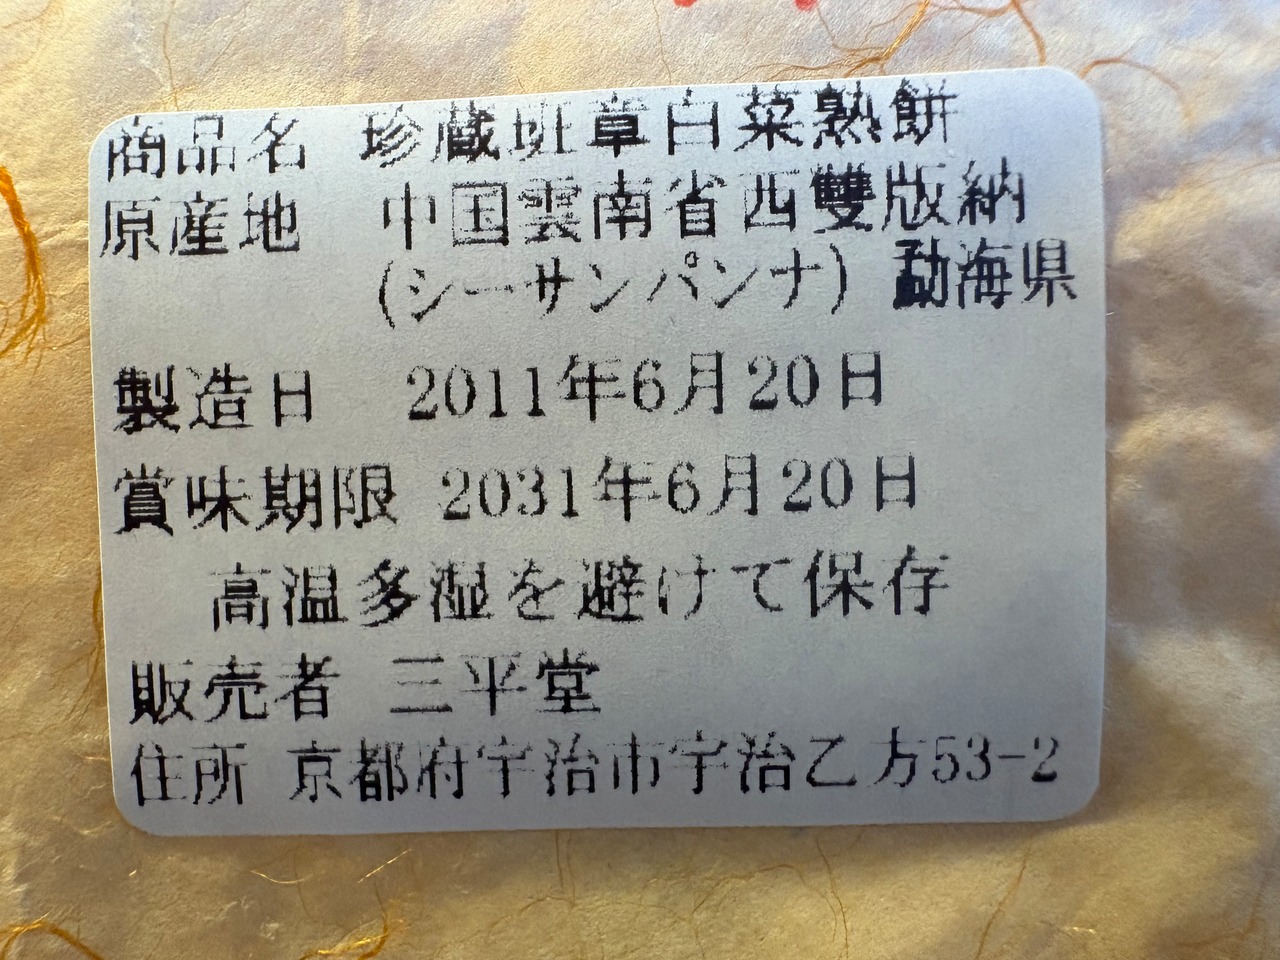 商品名 珍蔵班章白菜熟餅
原産地 中国雲南省西雙版納
(シーサンパンナ) 勐海県
製造日 2011年6月20日
賞味期限 2031年6月20日
高温多湿を避けて保存
販売者 三平堂
住所 京都府宇治市宇治乙方53-2